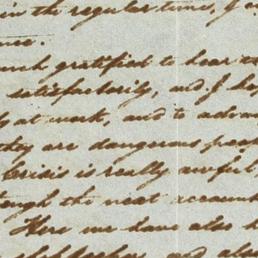 in the regular time, I a
nce.
much gratified to hear t
satisfactorily, and I ho
at work, and to advan
they are dangerous peop
Crisis is really awful,
ough the next account
Here we have also h
and also